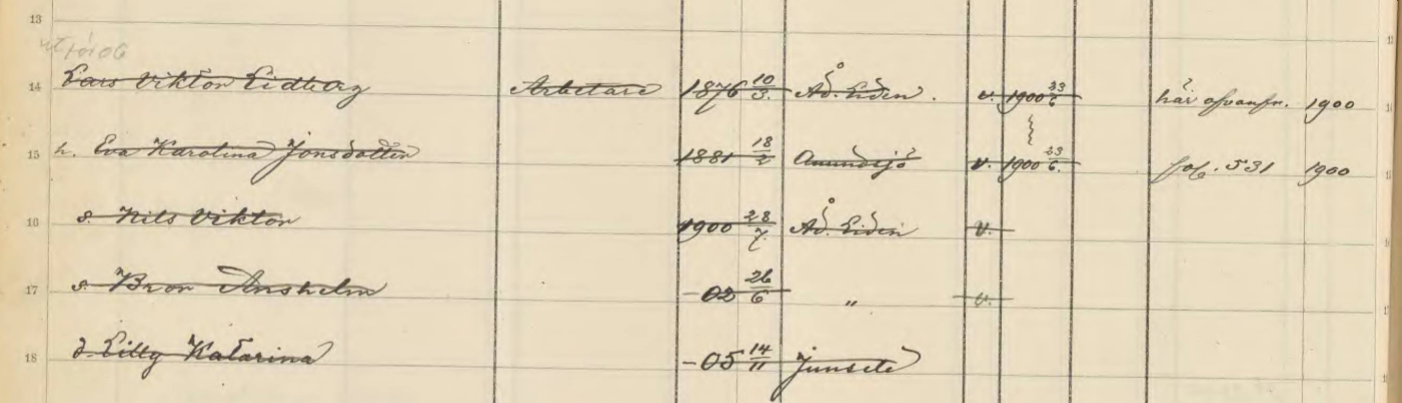 13
14 Lars Viktor Lidberg Arbetare 1876 10/3. Åd. Liden. v. 1900 23/6 här ofvanfr. 1900
15 h. Eva Karolina Jonsdotter 1881 18/2 Anundsjö v. 1900 23/6. fol. 531 1900
16 s. Nils Viktor 1900 28/7. Åd. Liden v.
17 s. Bror Anshelm -02 26/6 " v.
18 d. Lilly Katarina -05 14/11 Junsele